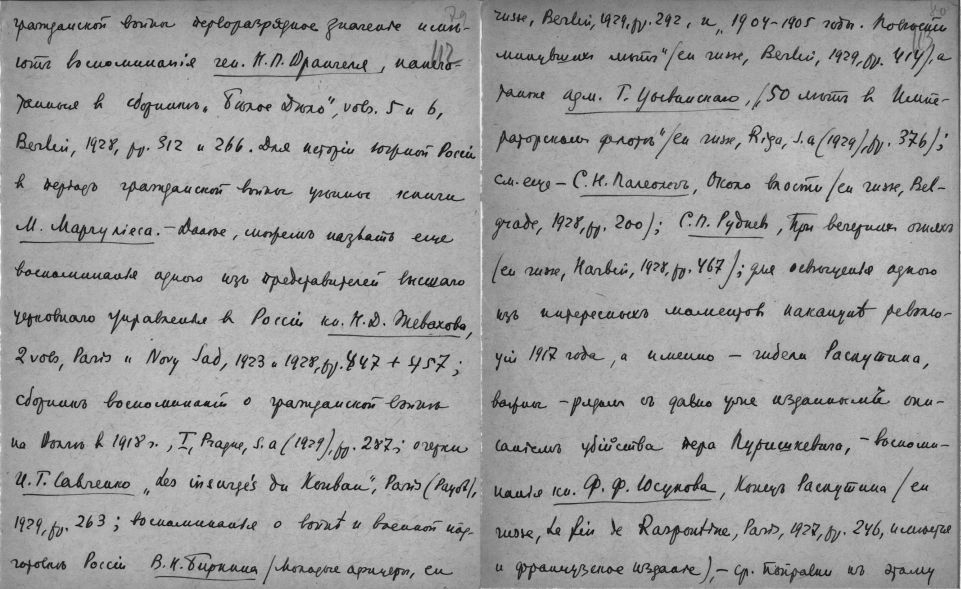 79
гражданской войны перворазрядное значенiе имѣ-
117
ютъ воспоминанiя ген. К.П. Врангеля, напеча-
танныя в сборникѣ „Бѣлое Дѣло", vols. 5 и 6,
Berlin, 1928, pp. 312 и 266. Для исторiи южной Россiи
в перiодъ гражданской войны цѣнны книги
М. Маргулiеса. – Далѣе, можемъ назвать еще
воспоминанiя одного изъ представителей высшаго
церковнаго управленiя в Россiи кн. Н.Д. Жевахова,
2 vols, Paris и Novy Sad, 1923 и 1928, pp. 447 + 457;
сборникъ воспоминанiй о гражданской войнѣ
на Дону в 1918 г., I, Prague, s.a (1929), pp. 287; очерки
И.Т. Савченко „Les insurgés du Kouban", Paris (Payot),
1929, pp. 263; воспоминанiя о войнѣ и военной под-
готовкѣ Россiи В.Н. Биркина /Молодые офицеры, en
80
russe, Berlin, 1929, pp. 292, и „1904-1905 годы. Повѣсти
113
минувшихъ лѣтъ" /en russe, Berlin, 1929, pp. 414), а
также адм. Г. Цывинскаго, /„50 лѣтъ в Импе-
раторскомъ флотѣ" /en russe, Riga, s.a (1929), pp. 376);
см. еще – С.Н. Палеологъ, Около власти /en russe, Bel-
grade, 1928, pp. 200/; С.П. Рудневъ, При вечернихъ огняхъ
/en russe, Harbin, 1928, pp. 467/; для освѣщенiя одного
изъ интересныхъ моментовъ наканунѣ револю-
цiи 1917 года, а именно – гибели Распутина,
важны – рядомъ съ давно уже изданнымъ опи-
санiемъ убiйства пера Пуришкевича, – воспоми-
нанiя кн. Ф.Ф. Юсупова, Конецъ Распутина /en
russe, La fin de Raspoutine, Paris, 1927, pp. 246, имѣется
и французское изданiе), – ср. поправки къ этому